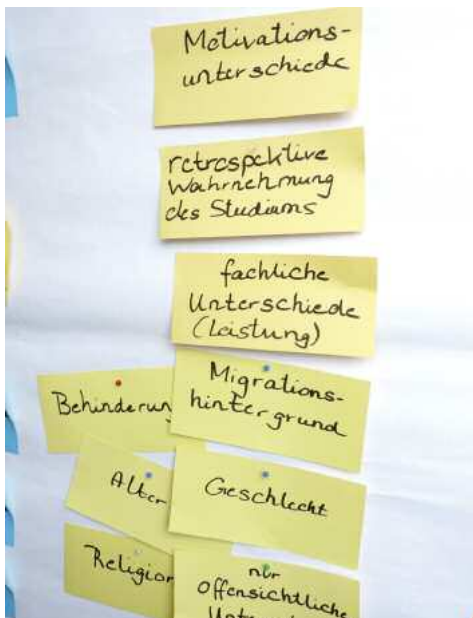 Motivations-
unterschiede
retrospektive
Wahrnehmung
des Studiums
fachliche
Unterschiede
(Leistung)
Migrations-
hintergrund
Behinderung
Alter
Geschlecht
Religion
nur
offensichtliche